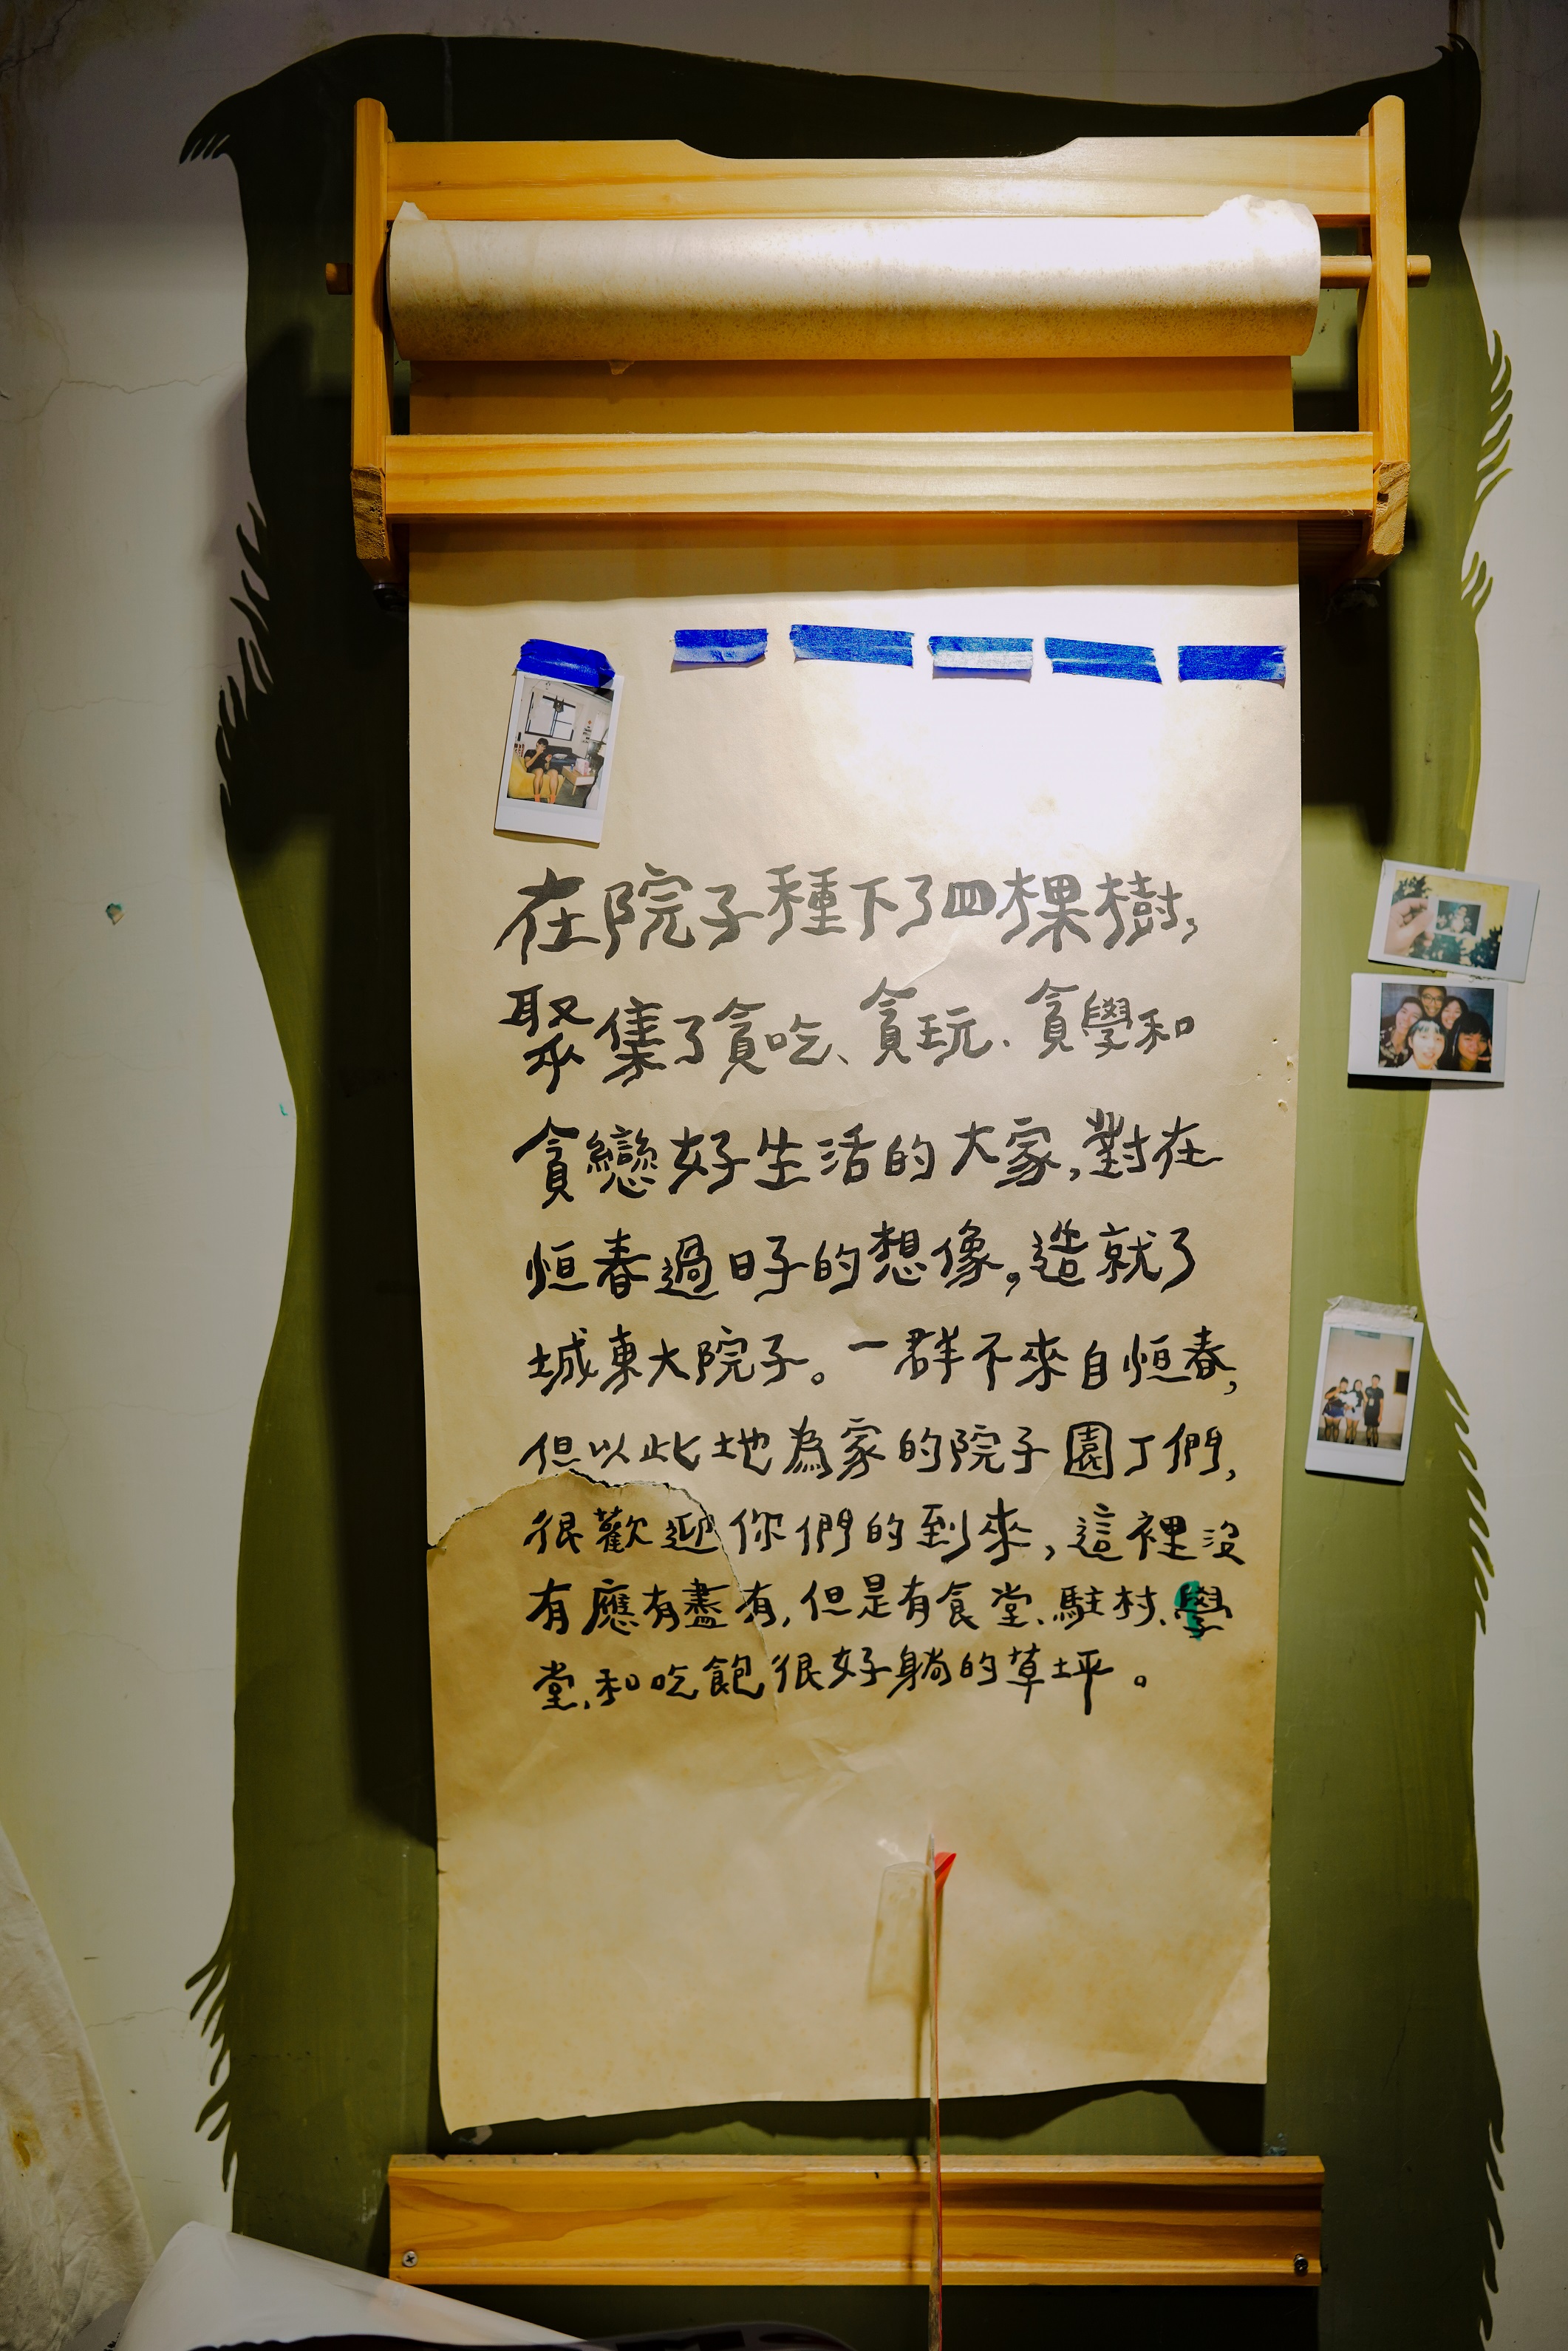 在院子種下了四棵樹,
聚集了貪吃、貪玩、貪學和
貪戀好生活的大家,對在
恒春過日子的想像,造就了
城東大院子。一群不來自恒春,
但以此地為家的院子園丁們,
很歡迎你們的到來,這裡沒
有應有盡有,但是有食堂、駐村、學
堂、和吃飽很好躺的草坪。